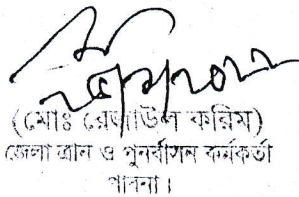 (মোঃ রেজাউল করিম)
জেলা ত্রান ও পুনর্বাসন কর্মকর্তা
পাবনা।